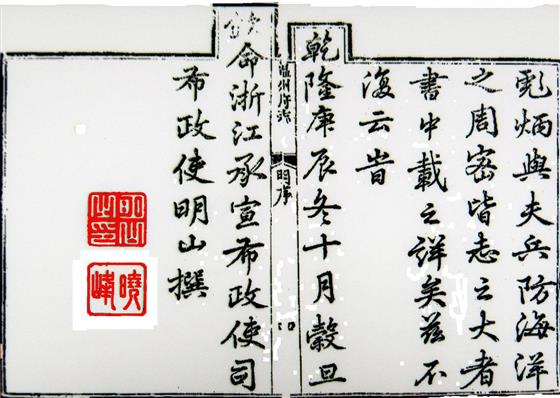 彪炳與夫兵防海洋
之周密皆志之大者
書中載之詳矣茲不
復云旹
乾隆庚辰冬十月穀旦
温州府志 明序 四
欽命浙江承宣布政使司
布政使明山撰
明山之印
曉峰